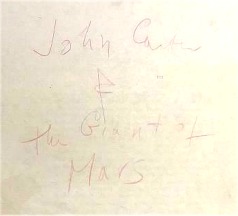 John Carter
&
the Giant of
Mars